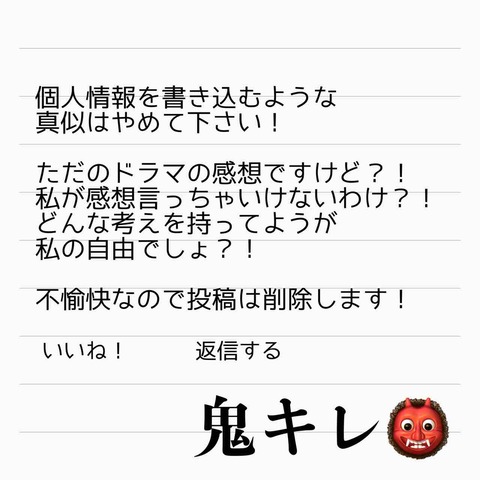 個人情報を書き込むような
真似はやめて下さい！
ただのドラマの感想ですけど？！
私が感想言っちゃいけないわけ？！
どんな考えを持ってようが
私の自由でしょ？！
不愉快なので投稿は削除します！
いいね！ 返信する
鬼キレ👹